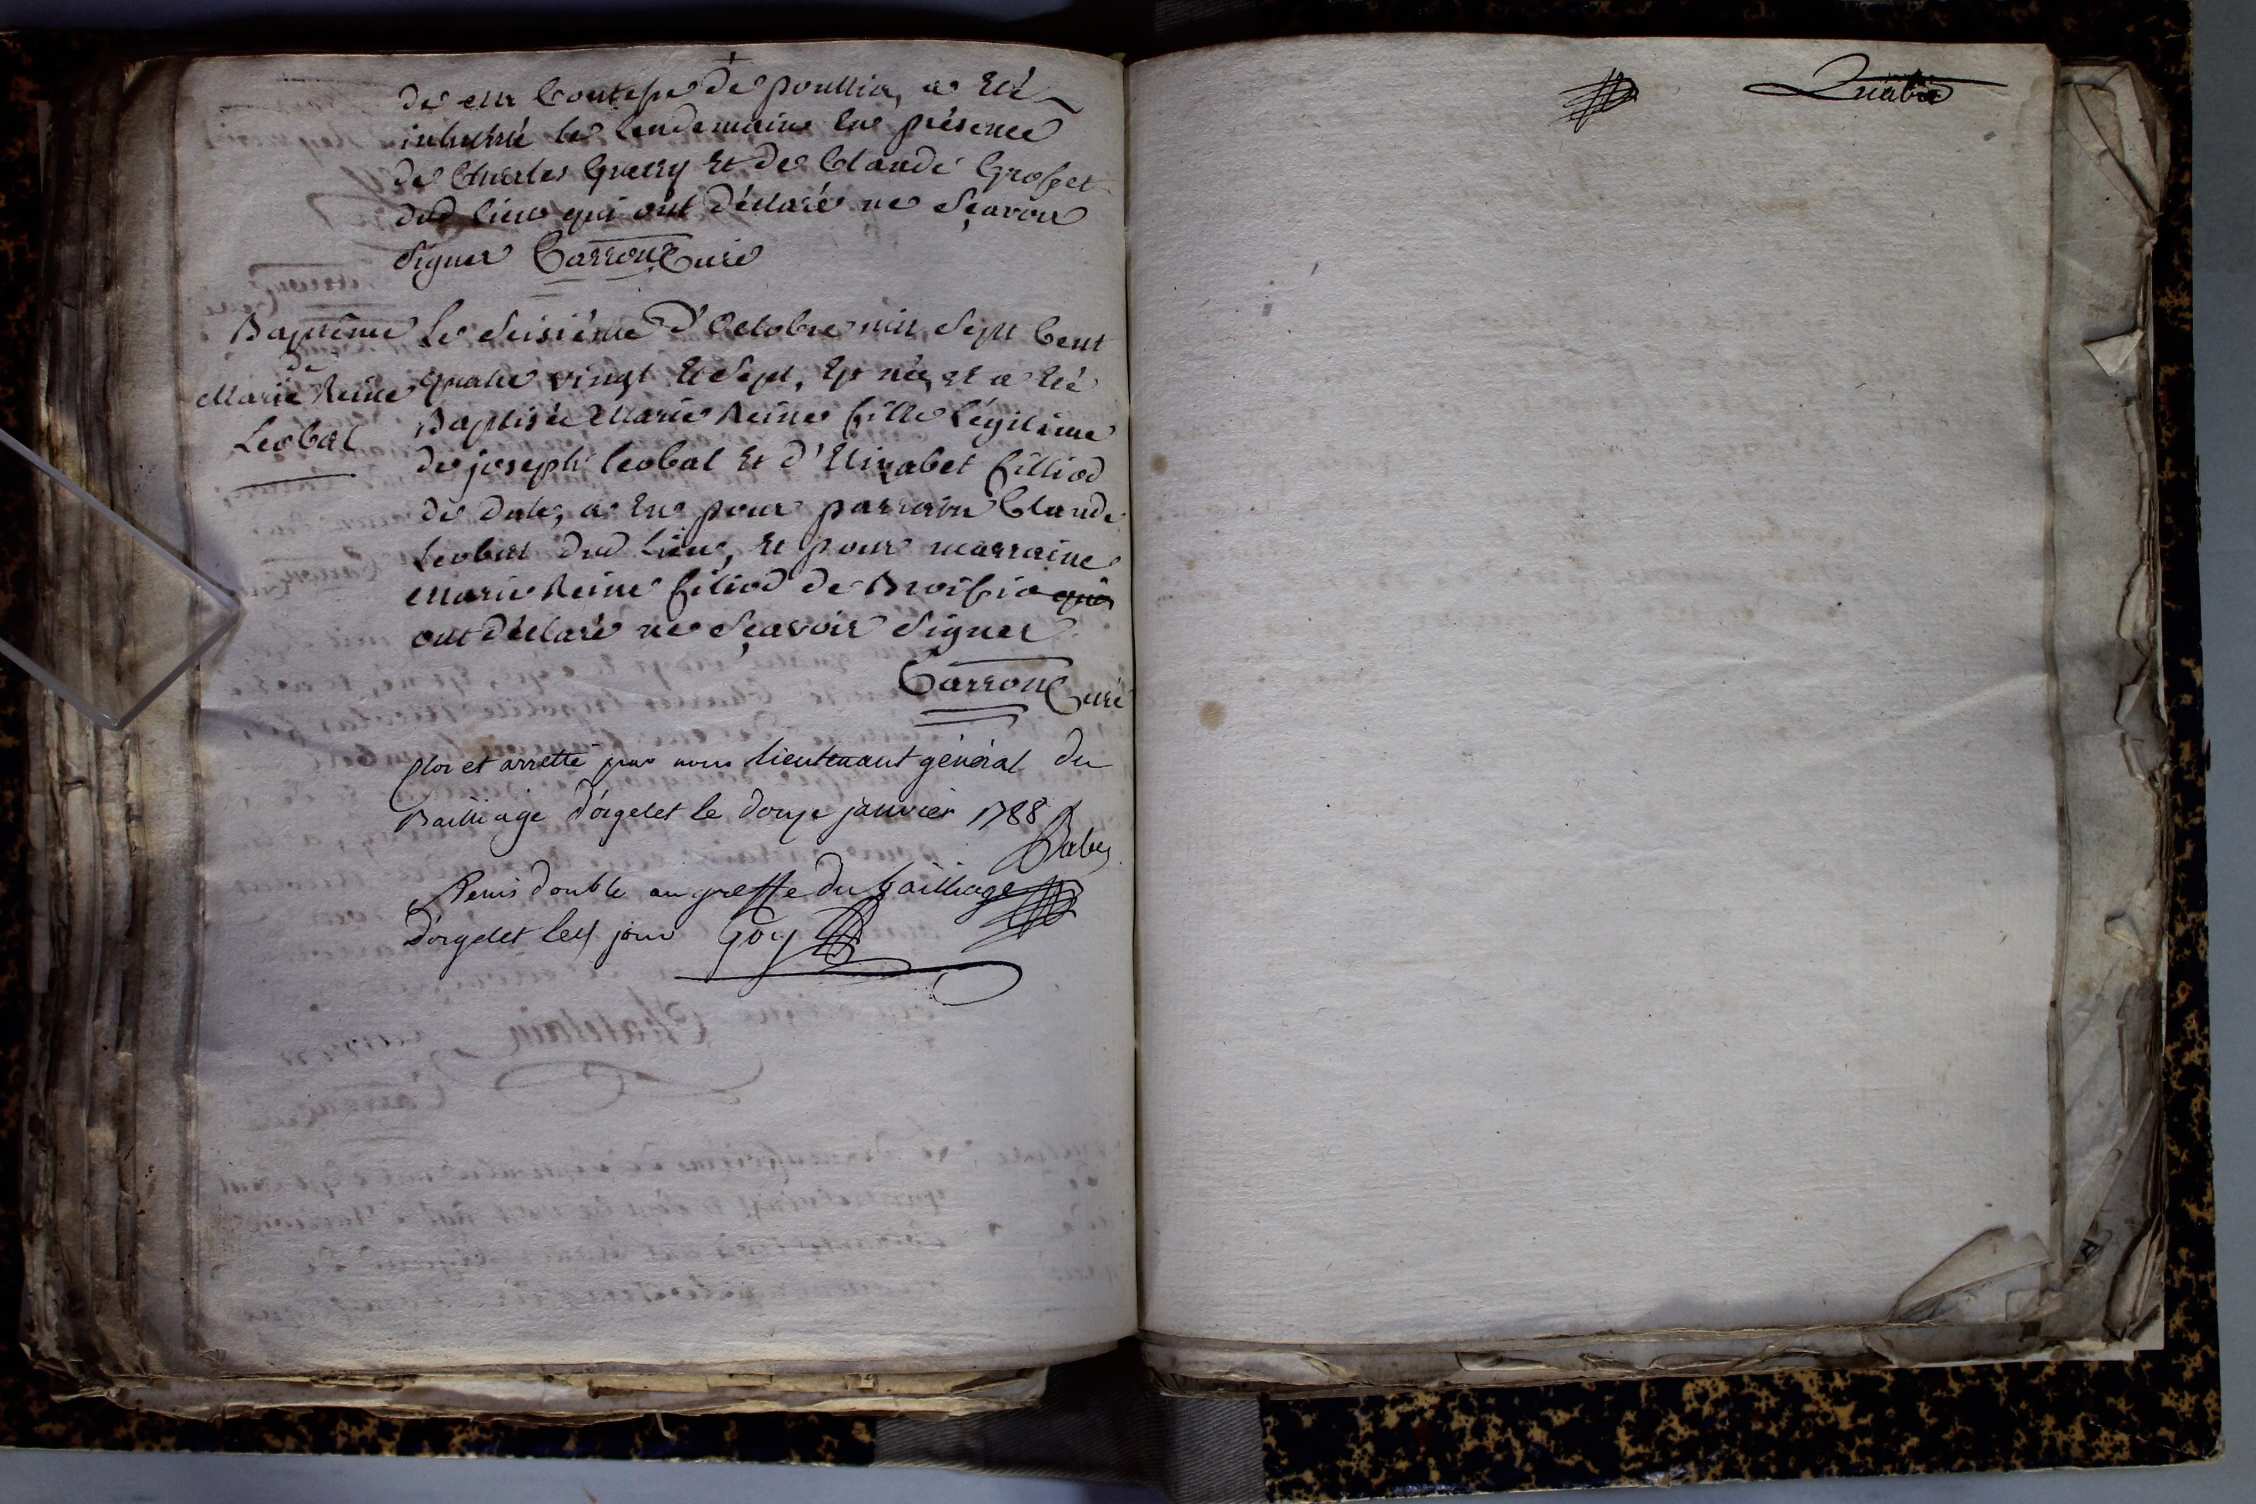 de mr Contesse de poullia, a Eté
inhumé le lendemain En présence
de Charles Grezy Et de Claude Grosset
dud lieu qui ont déclaré ne Sçavoir
Signer Carron Curé
Baptême
de
Marie Reine
Leobal
Le Seisiéme d'Octobre mil Sept Cent
quatre vingt Et Sept, Est née, et a Eté
Baptisée Marie Reine fille Légitime
de joseph Leobal Et d'Elizabet filliod
de a Eu pour parrain Claude
Leobal dud Lieu, Et pour marraine
Marie Reine filiod de Broissia qui
ont déclaré ne Sçavoir Signer
Carron Curé
Clos et arretté par nous lieutenant général du
Bailliage d'orgelet le douze janvier 1788
Babey
Remis double au greffe du bailliage
d'orgelet led jour Goy